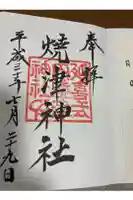 奉拝
焼津神社
平成三十年七月二十九日